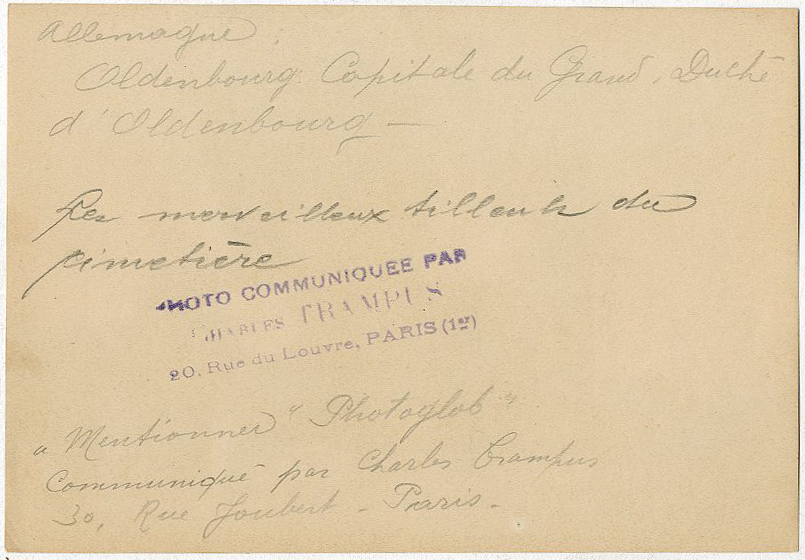 Allemagne :
Oldenbourg. Capitale du Grand. Duché
d'Oldenbourg —
Les merveilleux tilleuls du
cimetière
PHOTO COMMUNIQUEE PAR
CHARLES TRAMPUS
20, Rue du Louvre, PARIS (1er)
"Mentionner "Photoglob"
Communiqué par Charles Trampus
30, Rue Joubert - Paris -